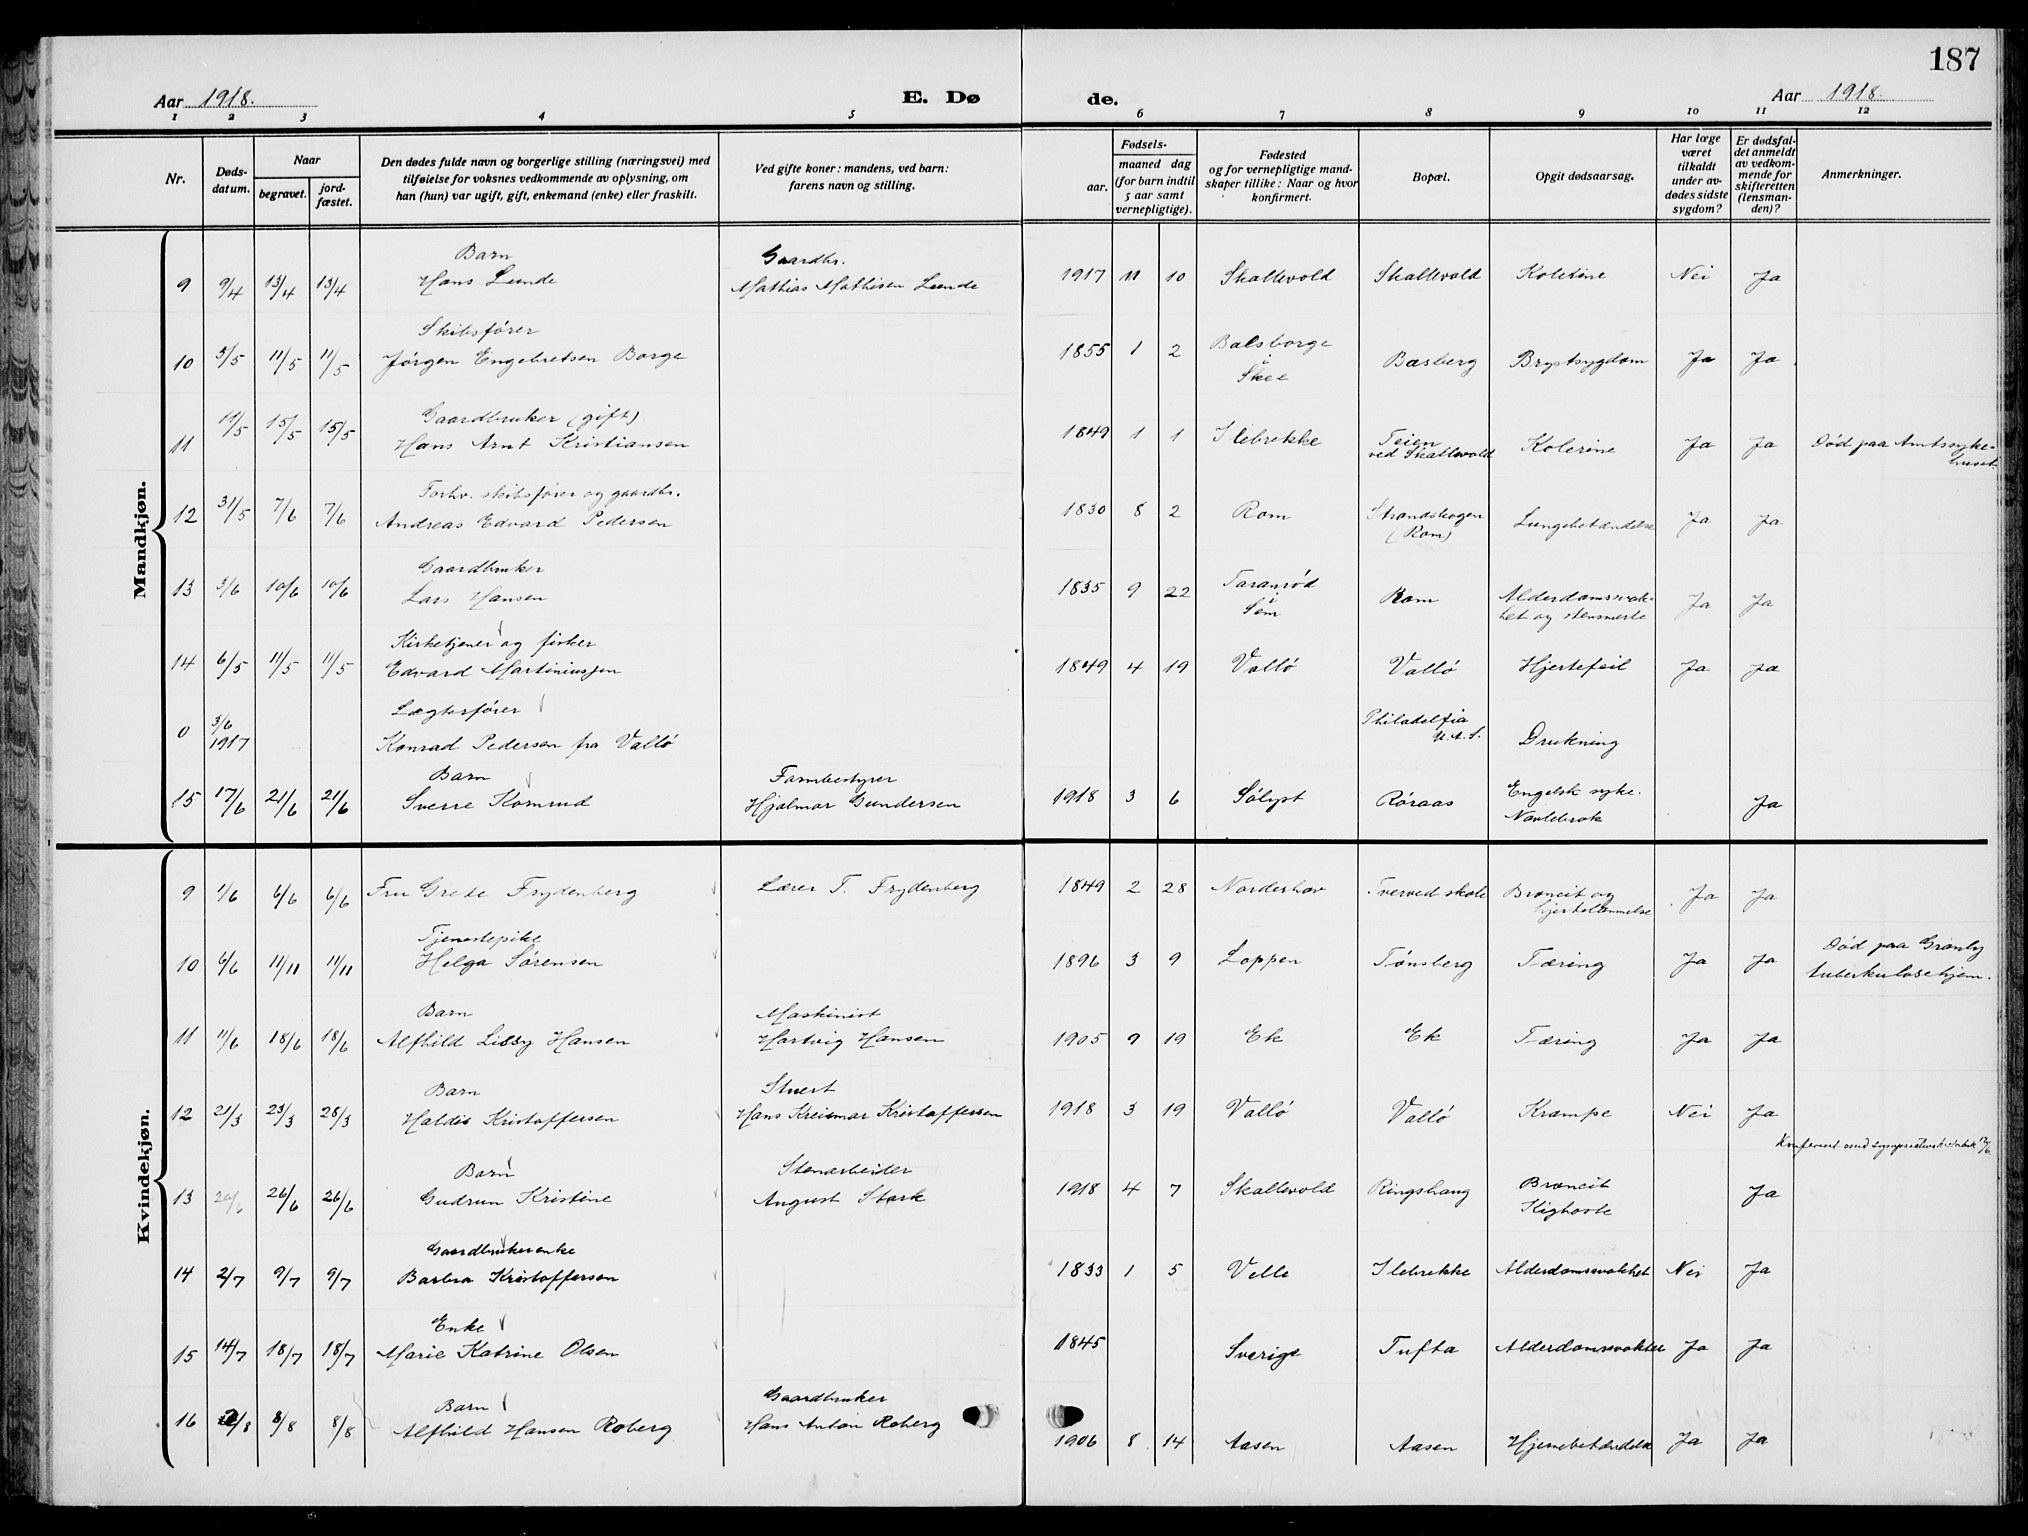 187
Aar 1918. E. Dø de. Aar 1918.
1 2 3 4 5 6 7 8 9 10 11 12
Nr.
Døds-
datum.
Naar
begravet.
jord-
fæstet.
Den dødes fulde navn og borgerlige stilling (næringsvei) med
tilføielse for voksnes vedkommende av oplysning, om
han (hun) var ugift, gift, enkemand (enke) eller fraskilt.
Ved gifte koner: mandens, ved barn:
farens navn og stilling.
Fødsels-
aar.
maaned dag
(for barn indtil
5 aar samt
vernepligtige).
Fødested
og for vernepligtige mand-
skaper tillike: Naar og hvor
konfirmert.
Bopæl.
Opgit dødsaarsag.
Har læge
været
tilkaldt
under av-
dødes sidste
sygdom?
Er dødsfal-
det anmeldt
av vedkom-
mende for
skifteretten
(lensman-
den)?
Anmerkninger.
Mandkjøn.
Barn Gaardbr.
9 9/4 13/4 13/4 Hans Lunde Mathias Mathisen Lunde 1917 11 10 Skallevold Skallevold Kolerine Nei Ja
Skibsfører
10 3/5 11/5 11/5 Jørgen Engebretsen Borge 1855 1 2 Basberge i Skee Basberg Brystsygdom Ja Ja
Gaardbruker (gift)
11 11/5 15/5 15/5 Hans Arnt Kristiansen 1849 1 1 Ilebrekke Teien ved Skallevold Kolerine Ja Ja Død paa Amtssyke-
huset
Forhv. skibsfører og gaardbr.
12 31/5 7/6 7/6 Andreas Edvard Pedersen 1830 8 2 Rom Strandskogen (Rom) Lungebetændelse Ja Ja
Gaardbruker
13 3/6 10/6 10/6 Lars Hansen 1835 9 22 Taranrød i Sem Rom Alderdomssvak-
het og stensmerte Ja Ja
Kirketjener og fisker
14 6/5 11/5 11/5 Edvard Martiniussen 1849 4 19 Vallö Vallö Hjertefeil Ja Ja
Lægterfører
0 3/6 1917 Konrad Pedersen fra Vallö Philadelfia U.A.S. Drukning
Barn Farmbestyrer
15 17/6 21/6 21/6 Sverre Komrud Hjalmar Gundersen 1918 3 6 Sølyst Røraas Engelsk syke.
Navlebrok Ja
Kvindekjøn.
9 1/6 6/6 6/6 Fru Grete Frydenberg Lærer T. Frydenberg 1849 2 28 Norderhov Tverved skole Broncit og
hjertelammelse Ja Ja
Tjenestepike
10 6/6 11/11 11/11 Helga Sørensen 1896 3 9 Loppen Tønsberg Tæring Ja Ja Død paa Granly
tuberkulosehjem.
Barn Maskinist
11 11/6 18/6 18/6 Alfhild Lissy Hansen Hartvig Hansen 1905 9 19 Ek Ek Tæring Ja Ja
Barn Stuert
12 21/3 23/3 28/3 Haldis Kristoffersen Hans Kreismar Kristoffersen 1918 3 19 Vallö Vallö Krampe Nei Ja
Barn Stenarbeider
13 20/6 26/6 26/6 Gudrun Kristine August Stark 1918 4 7 Skallevold Ringshaug Broncit
Kighoste Ja
Gaardbrukerenke
14 2/7 9/7 9/7 Barbra Kristoffersen 1833 1 5 Velle Ilebrekke Alderdomssvakhet Nei Ja
Enke
15 14/7 18/7 18/7 Marie Katrine Olsen 1845 Sverige Tufta Ja Ja
Barn Gaardbruker
16 2/8 8/8 8/8 Alfhild Hansen Roberg Hans Anton Roberg 1906 8 14 Aasen Aasen Hjernebetændelse Ja Ja